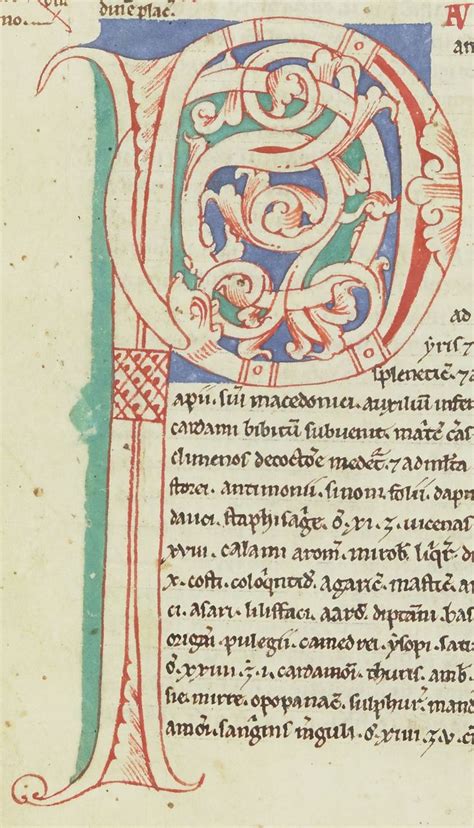 no.
duiē plac̄.
AV
an
ad
yris ⁊
spleneticͥ ⁊ a
apii. siū macedonici. auxilium infe
cardami bibitū subuenit. mat̄e c̄as
climenos decoctōe medet̄. ⁊ admixta
storei. antimonii. sinoni. folii. dap
dauci. staphisag̃e. xi. vicenas
xviii. calami arom̄. mirob̄. liq̄r̄. di
x. costi. coloq̄ntid̄. agaric̄. mastic̄ a
ci. asari. lilisfaci. aard̄. diptam̄ bas
origan̄ pulegii camedrei. ysopi. sati
xxiiii. i. cardamōi. thuris. amb̄.
sie. mirre. opopanac̄. sulphur̄. mand
amōi. sang̃inis īguli. xiiii. v.